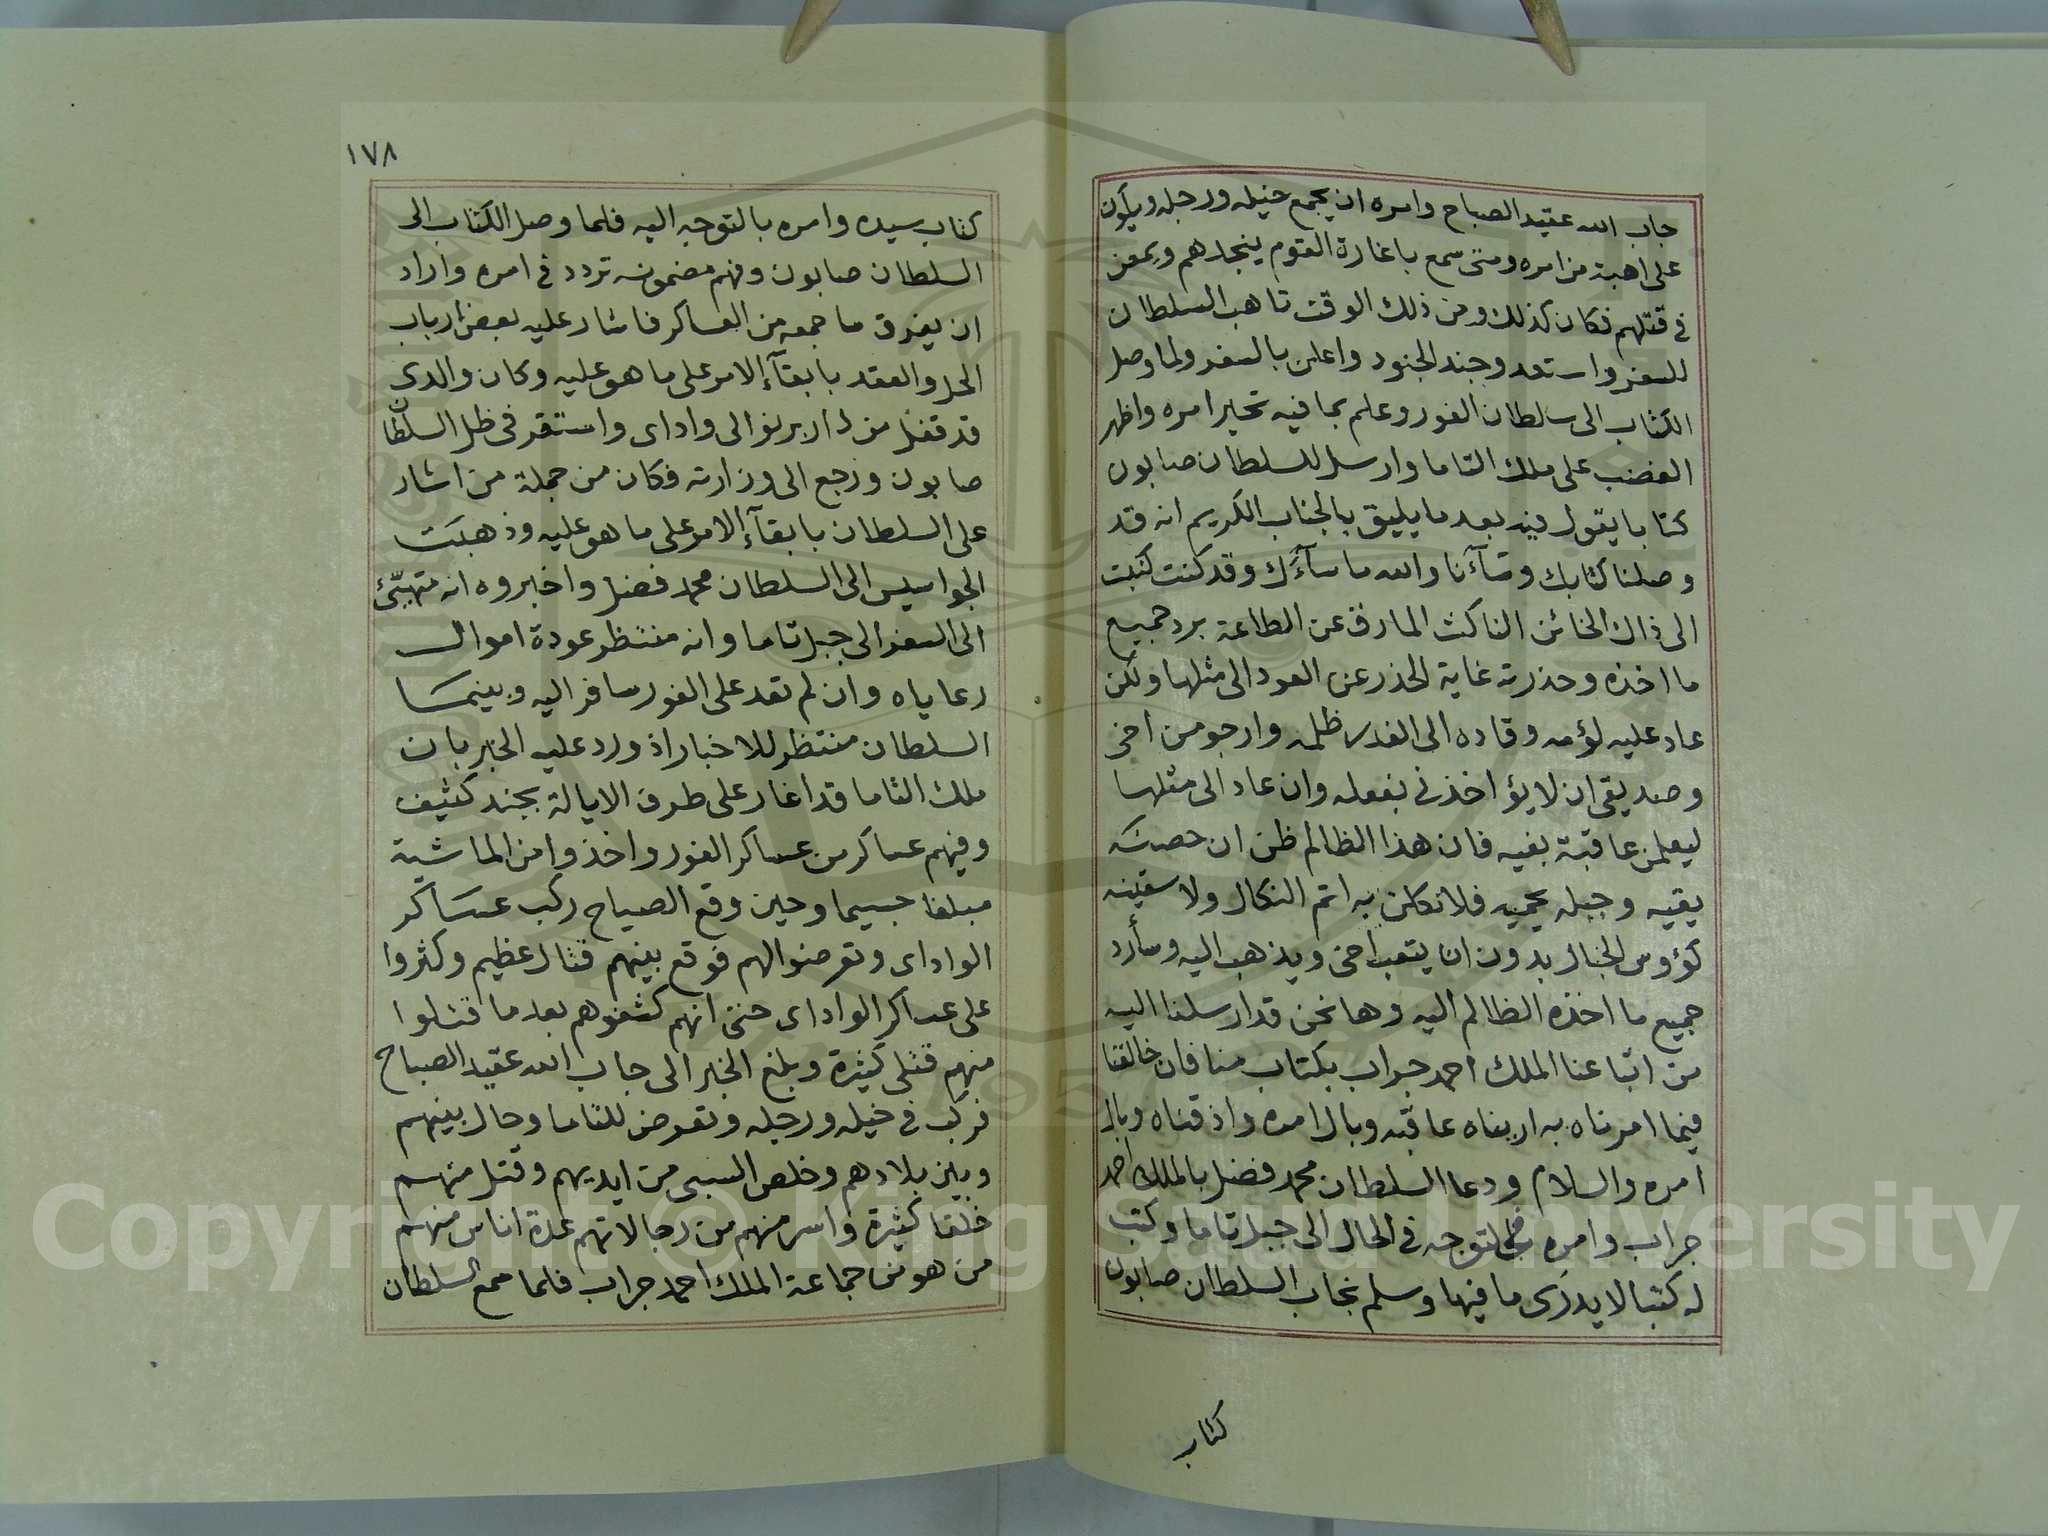 جاب الله عقيد الصباح وامره ان يجمع خيله ورجله ويكون
على اهبة من امره ومتى سمع باغارة القوم ينجدهم ويمعن
في قتلهم فكان كذلك ومن ذلك الوقت تاهب السلطان
للسفر واستعد وجند الجنود واعلن بالسفر ولما وصل
الكتاب الى سلطان الفور وعلم بما فيه تحير امره واظهر
الغضب على ملك التاما وارسل للسلطان صابون
كتابا يقول فيه بعد ما يليق بالجناب الكريم انه قد
وصلنا كتابك وسآءنا والله ماسآءك وقد كنت كتبت
الى ذاك الخائن الناكث المارق عن الطاعة برد جميع
ما اخذه وحذرته غاية الحذر عن العود الى مثلها ولكن
عاد عليه لؤمه وقاده الى الغدر ظلمه وارجو من اخى
وصديقى ان لا يؤاخذنى بفعله وان عاد الى مثلها
ليعلمن عاقبة بغيه فان هذا الظالم ظن ان حصنه
يقيه وجبله يحميه فلانكلن به اتم النكال ولاسقينه
كؤوس الخبال بدون ان يتعب اخى ويذهب اليه وسأرد
جميع ما اخذه الظالم اليه وها نحن قد ارسلنا اليه
من اتباعنا الملك احمد جراب بكتاب منا فان خالفنا
فيما امرناه به اريناه عاقبه وبال امره واذقناه وبال
امره والسلام ودعا السلطان محمد فضل بالملك احمد
جراب وامره بالتوجه فى الحال الى جبل تاما وكتب
له كتبا لا يدرى ما فيها وسلم نجاب السلطان صابون
كتاب
١٧٨
كتاب سيده وامره بالتوجه اليه فلما وصل الكتاب الى
السلطان صابون وفهم مضمونه تردد فى امره واراد
ان يفرق ما جمعه من العساكر فاشار عليه بعض ارباب
الحل والعقد بابقآء الامر على ما هو عليه وكان والدى
قد قفل من دار برنو الى واداى واستقر فى ظل السلطان
صابون ورجع الى وزارته فكان من جملة من اشار
على السلطان بابقآء الامر على ما هو عليه وذهبت
الجواسيس الى السلطان محمد فضل واخبروه انه متهيئ
الى السفر الى جبل تاما وانه منتظر عودة اموال
رعاياه وان لم تعد على الفور سافر اليه وبينما
السلطان منتظر للاخبار اذ ورد عليه الخبر بان
ملك التاما قد اغار على طرف الايالة بجند كثيف
وفيهم عساكر من عساكر الفور واخذوا من الماشية
مبلغا جسيما وحين وقع الصياح ركب عساكر
الواداى وتعرضوا لهم فوقع بينهم قتال عظيم وكثروا
على عساكر الواداى حتى انهم كشفوهم بعد ما قتلوا
منهم قتلى كثيرة وبلغ الخبر الى جاب الله عقيد الصباح
فركب فى خيله ورجله وتعرض للتاما وحال بينهم
وبين بلادهم وخلص السبى من ايديهم وقتل منهم
خلقا كثيرة واسر منهم من رجالاتهم عدة اناس منهم
من هو من جماعة الملك احمد جراب فلما سمع السلطان
Copyright © King Saud University